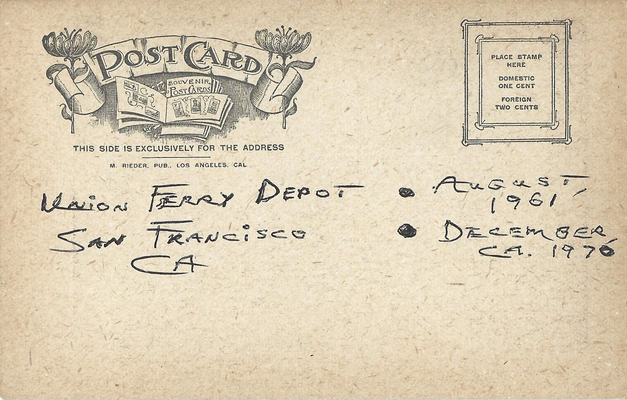 POST CARD
SOUVENIR
POST CARDS
THIS SIDE IS EXCLUSIVELY FOR THE ADDRESS
M. RIEDER, PUB., LOS ANGELES, CAL.
PLACE STAMP
HERE
DOMESTIC
ONE CENT
FOREIGN
TWO CENTS
UNION FERRY DEPOT
SAN FRANCISCO
CA
• AUGUST,
1961
• DECEMBER,
CA. 1970